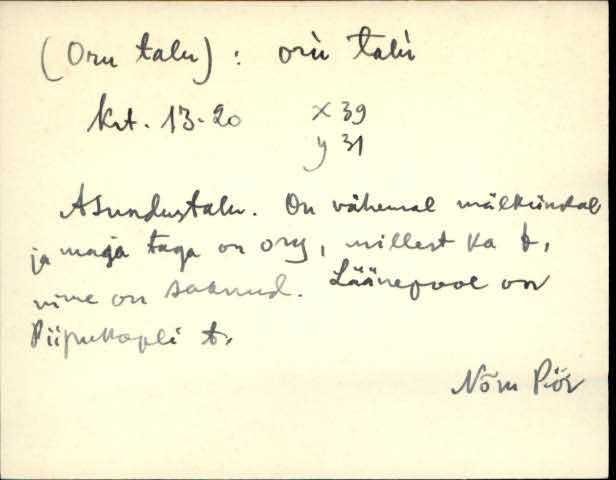 (Oru talu) : orù talù
Krt. 13-20 x 39
y 31
Asundustalu. On vähemal mälkünkal
ja maja taga on org, millest ka t.
nime on saanud. Läänepool on
Piipukopli t.
Nõm Pöö